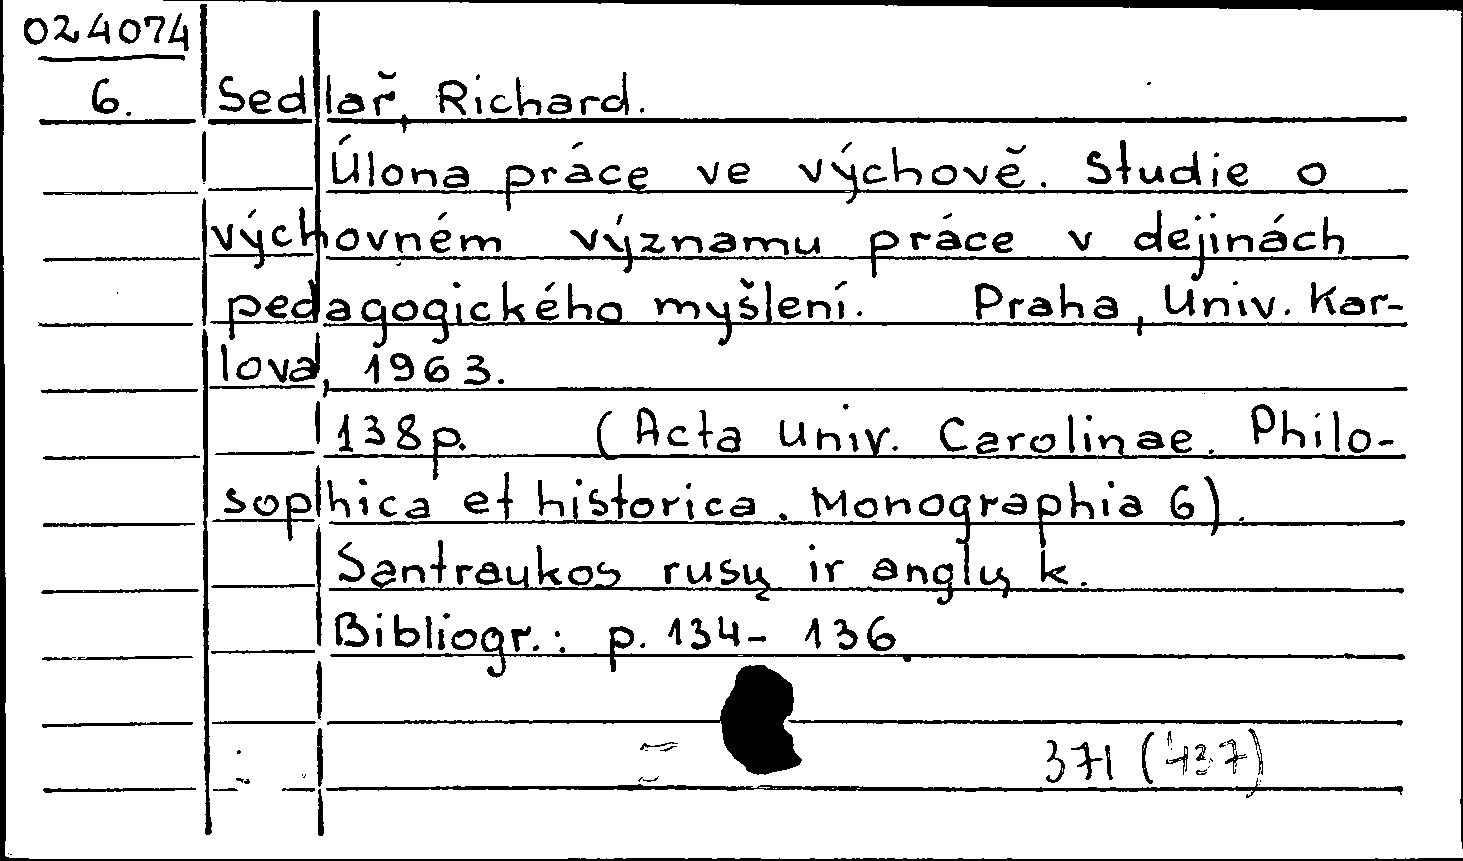 024074
6. Sedlař, Richard.
Úlona práce ve výchově. Studie o
výchovném významu práce v dejinách
pedagogického myšlení. Praha, Univ. Kar-
lova, 1963.
138p. (Acta Univ. Carolinae. Philo-
sophica et historica. Monographia 6).
Santraukos rusų ir anglų k.
Bibliogr.: p. 134-136.
371 (437)